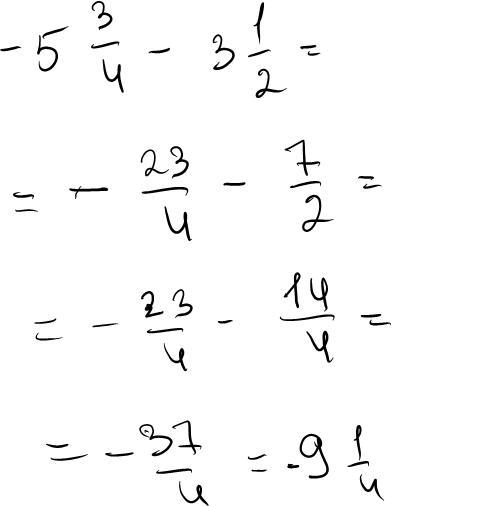 -5 3/4 - 3 1/2 =
= - 23/4 - 7/2 =
= - 23/4 - 14/4 =
= - 37/4 = -9 1/4